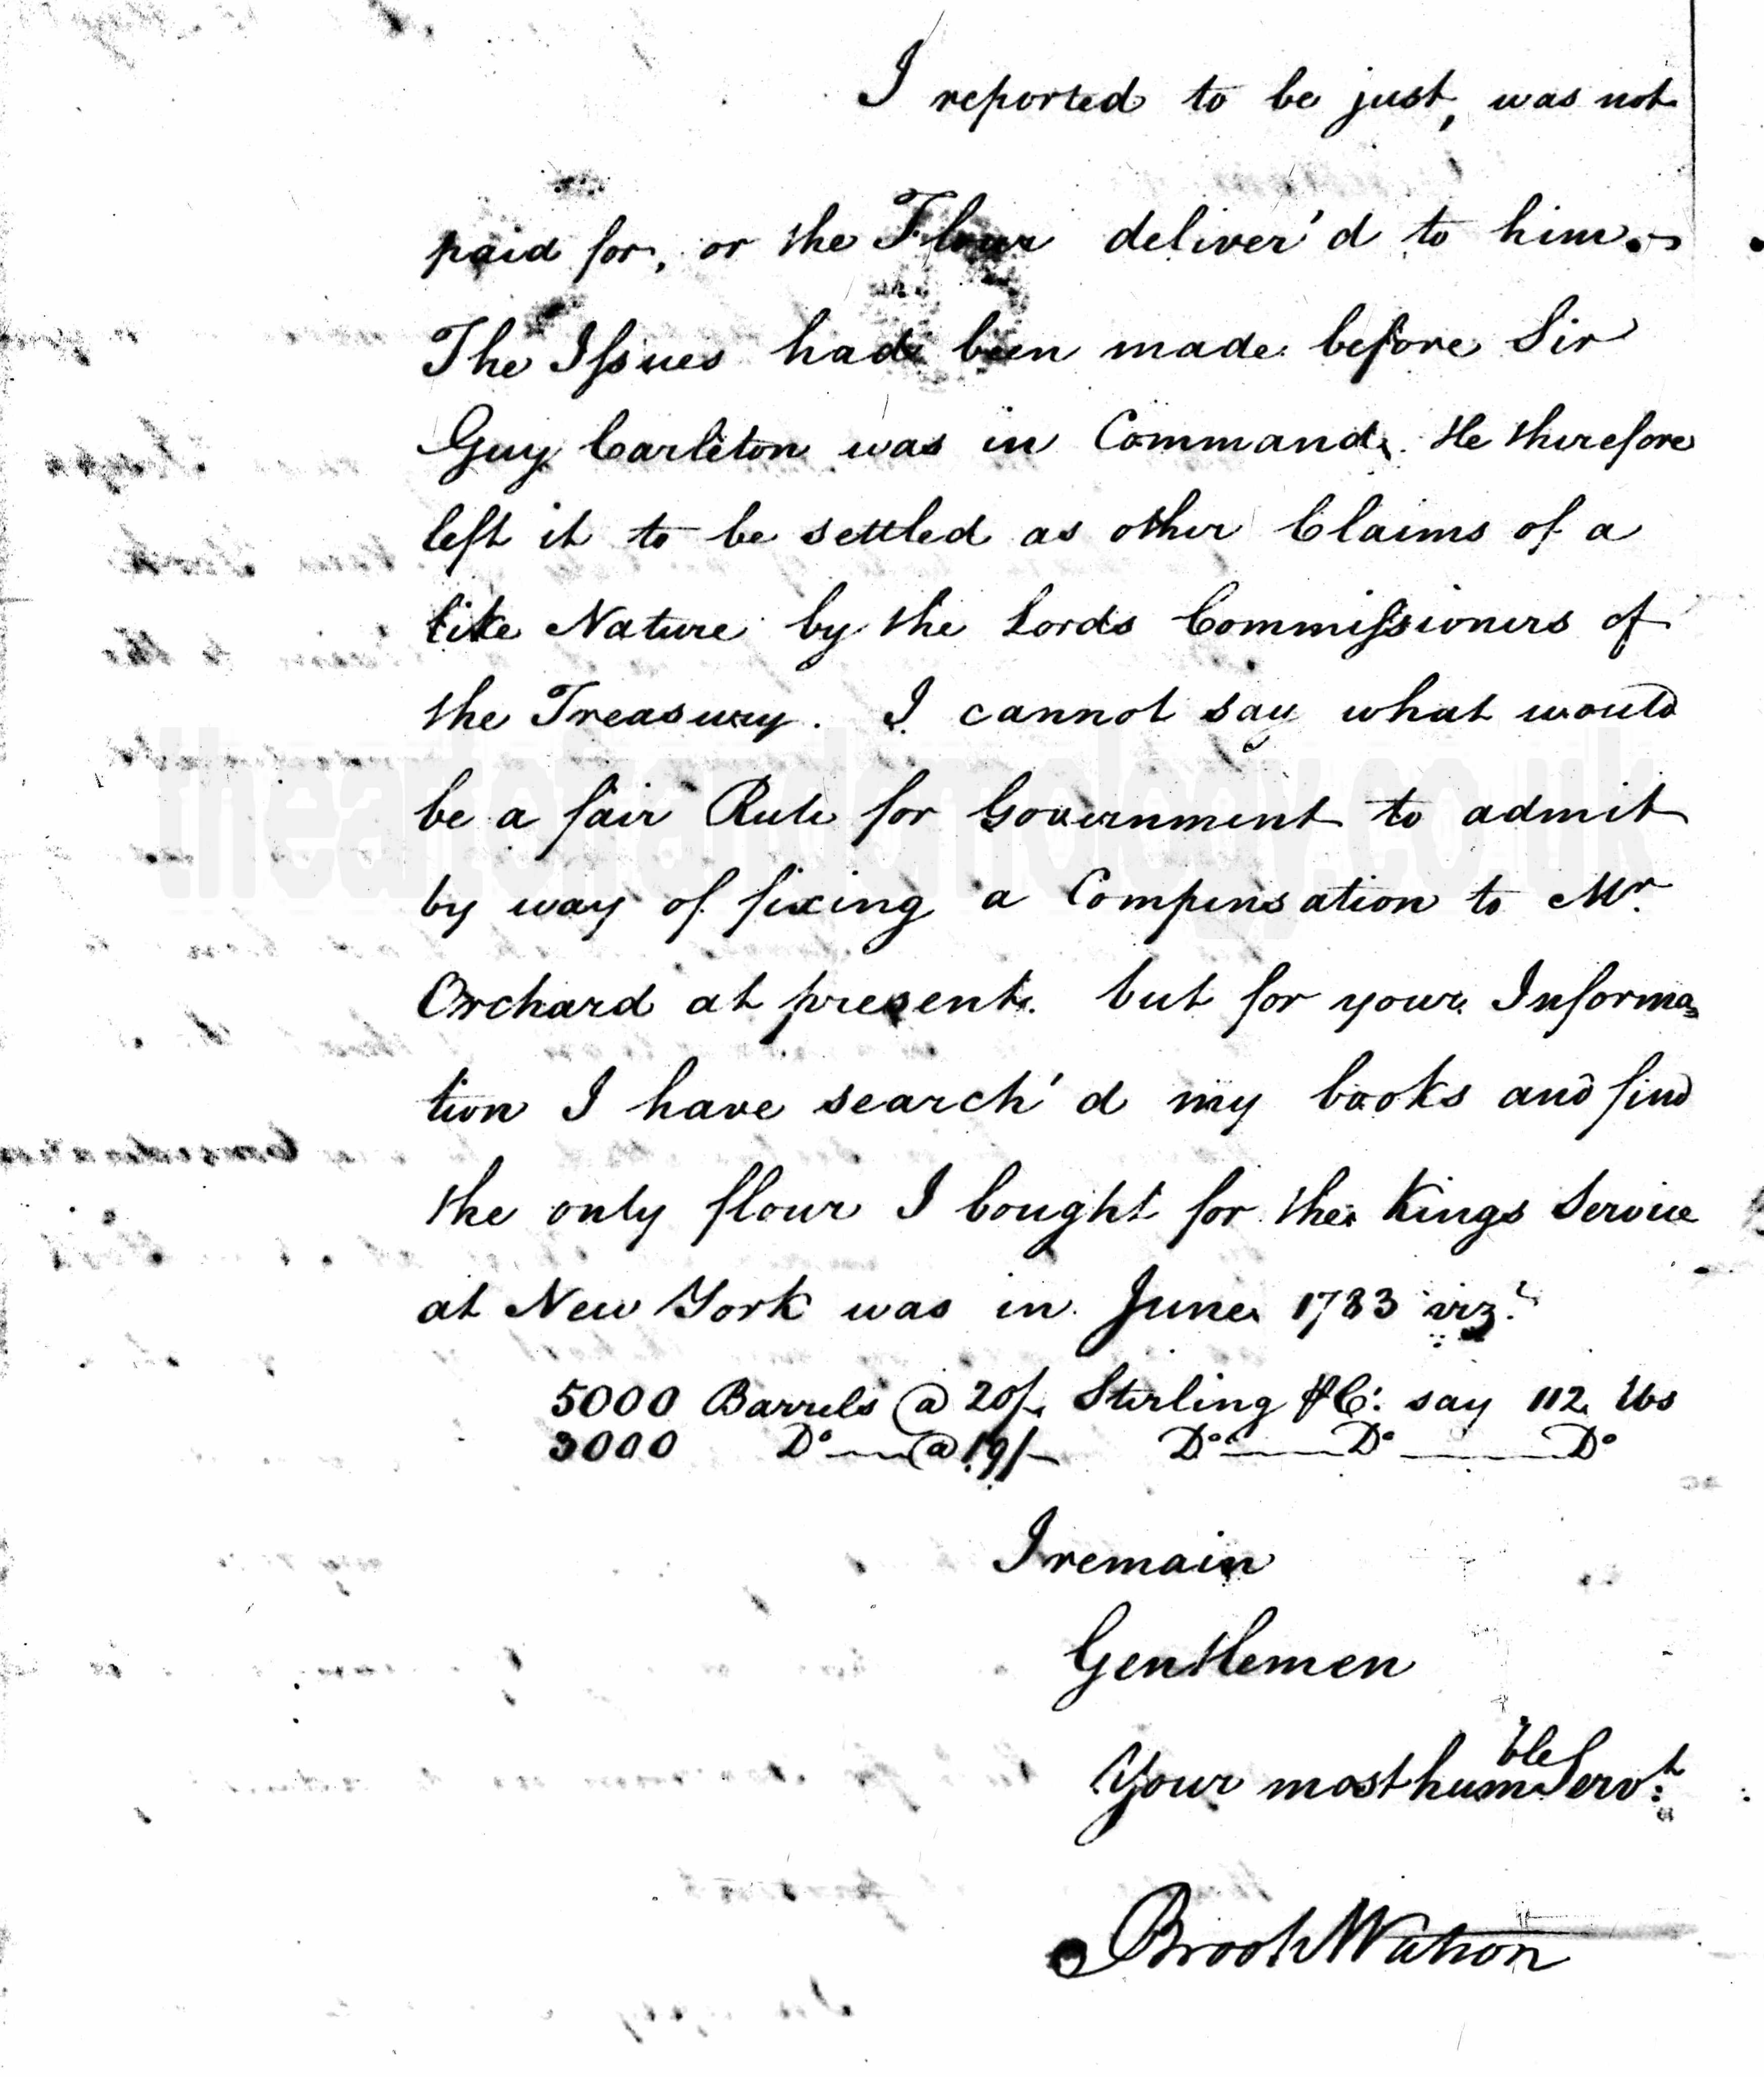 I reported to be just, was not
paid for, or the Flour deliver'd to him.
The Issues had been made before Sir
Guy Carleton was in Command. He therefore
left it to be settled as other Claims of a
like Nature by the Lords Commissioners of
the Treasury. I cannot say what would
be a fair Rule for Government to admit
by way of fixing a Compensation to Mr.
Orchard at present. but for your Informa=
tion I have search'd my books and find
the only flour I bought for the Kings Service
at New York was in June 1783 viz.t
5000 Barrels @ 20/. Sterling ⅌ C: say 112 lbs
3000 Do @ 19/- Do Do Do
I remain
Gentlemen
Your most humble Servt:
Brook Watson
theartofrandomology.co.uk